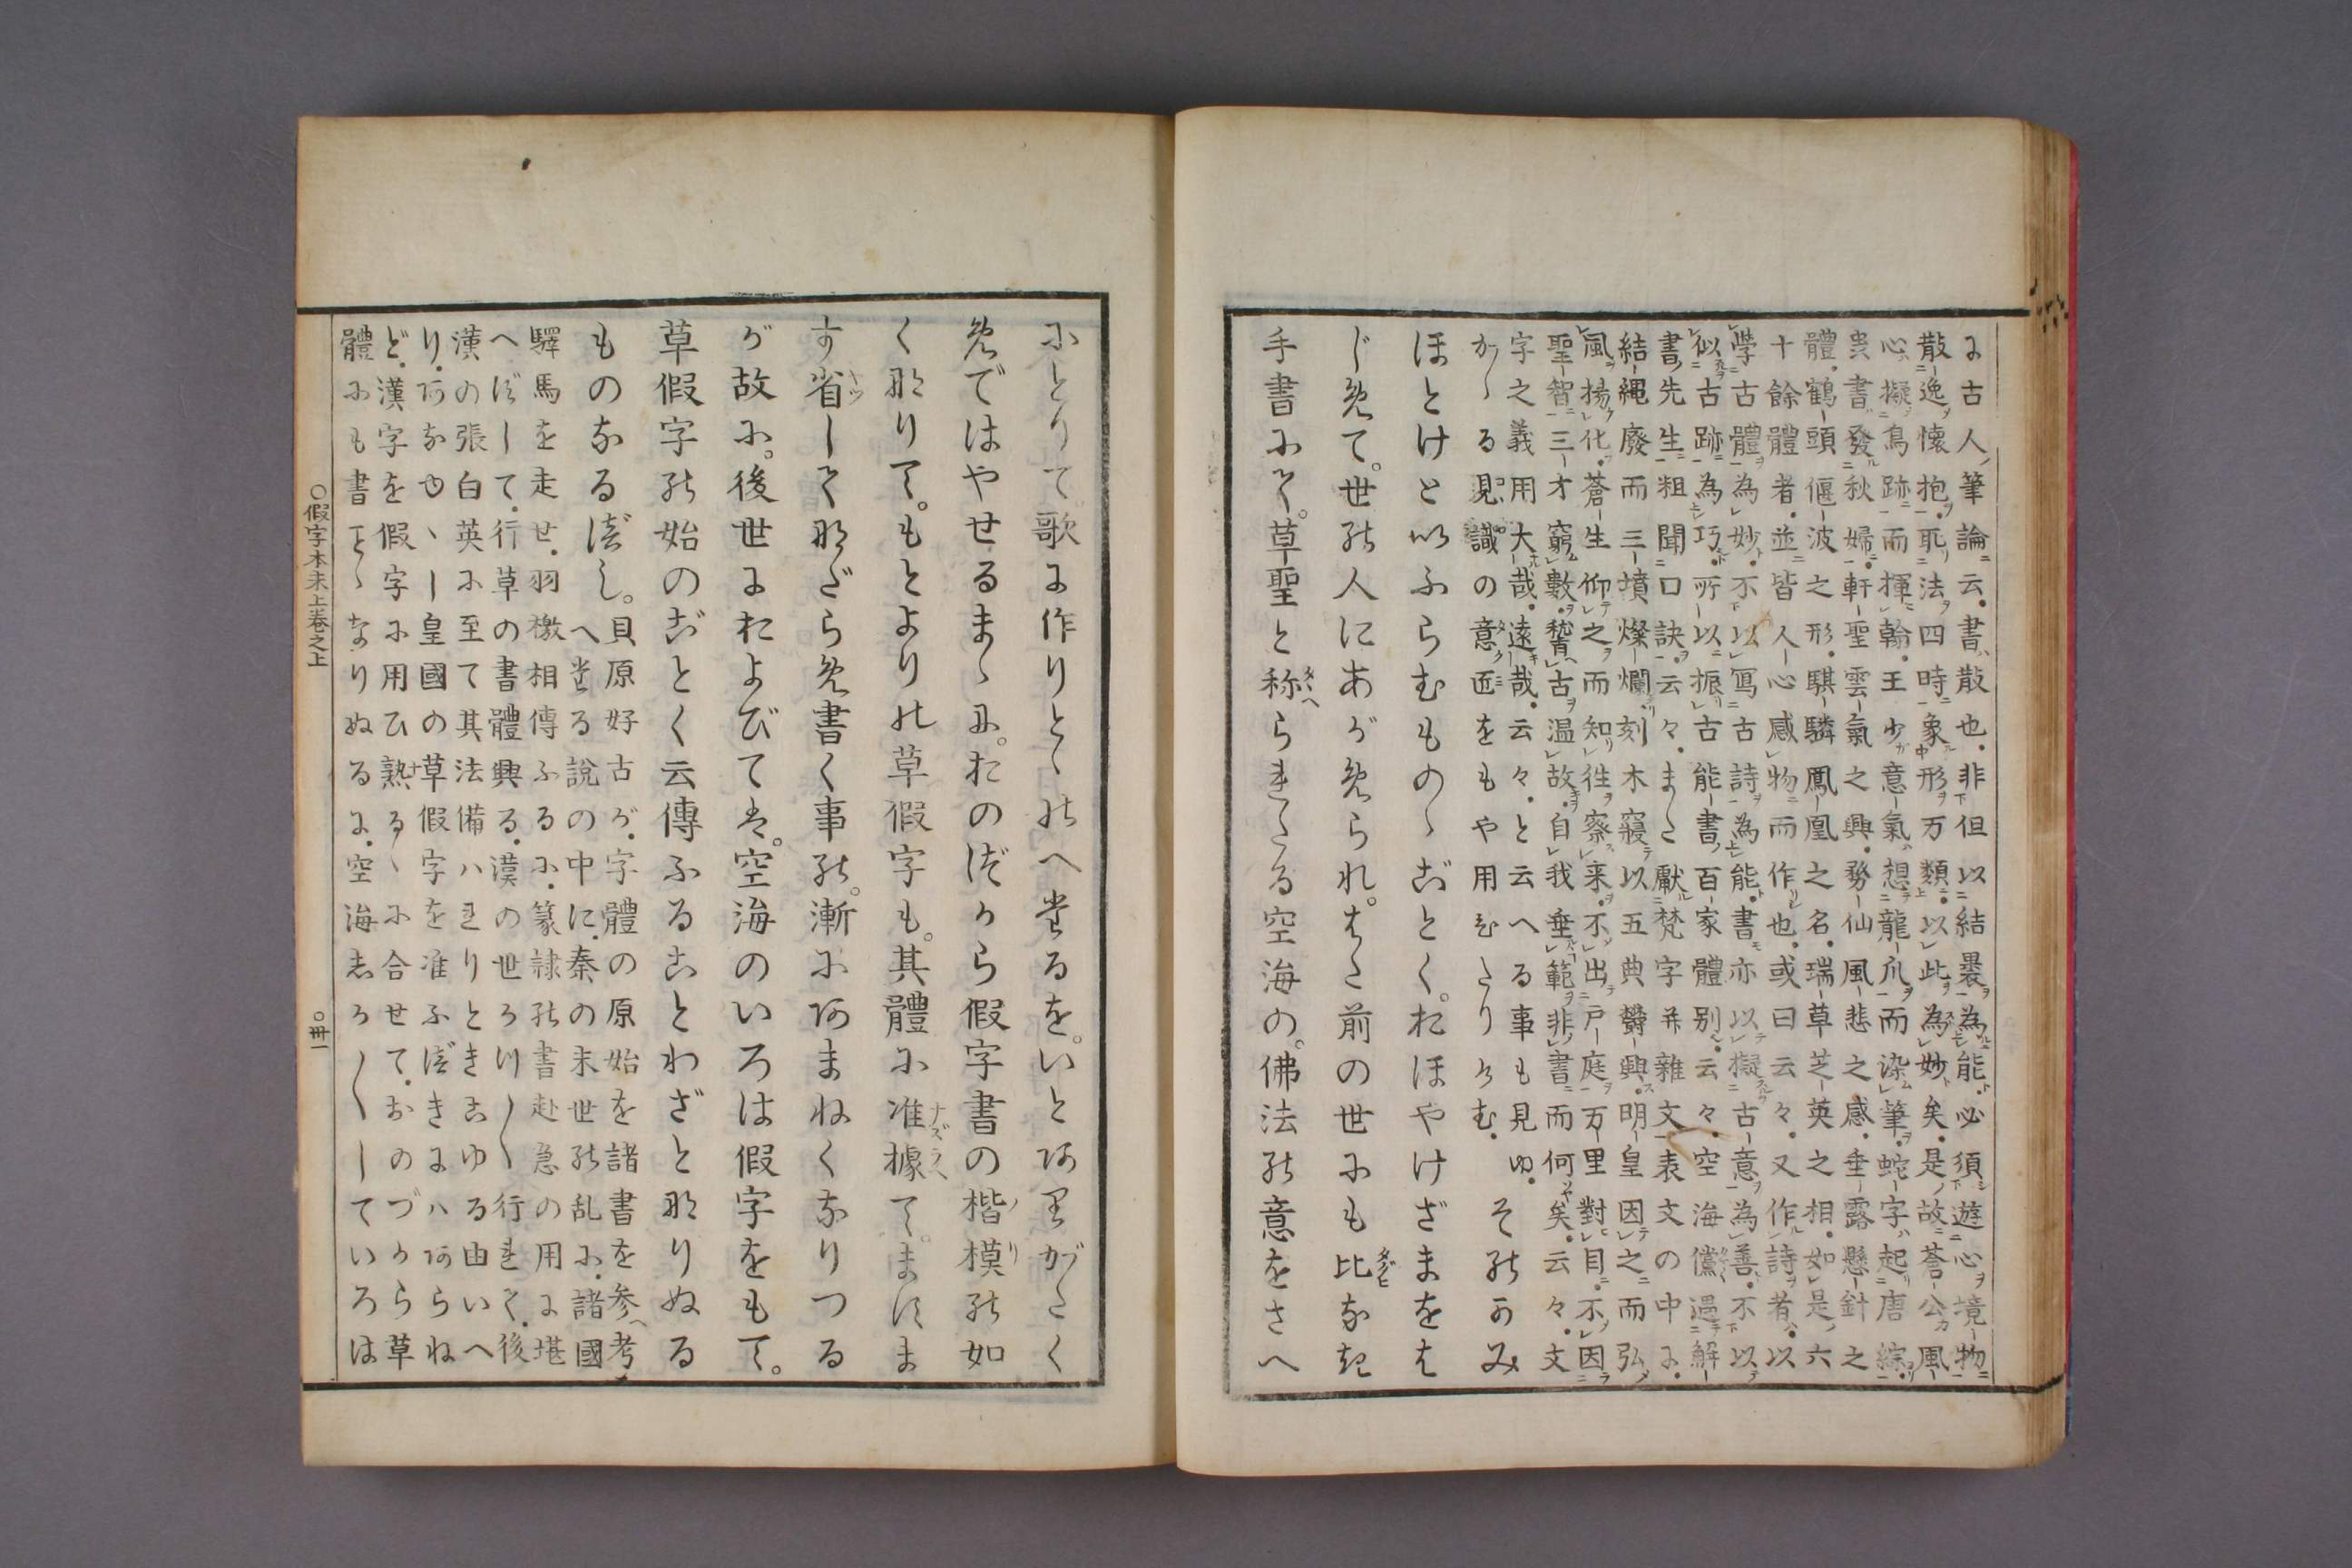 に古人筆論云。書散也。非但以結裹為能。必須遊心境物
散逸懐抱。取法四時。象形万類。以此為妙矣。是故蒼公風
心。擬鳥跡而揮翰。王少意氣。想龍爪而染筆。蛇字起唐綜。
書發秋婦。軒聖雲氣之興。務仙風悲之感。垂露懸針之
體。鶴頭偃波之形。騏驎鳳凰之名。瑞草芝英之相。如是六
十餘體者。並皆人心感物而作也。或曰云々。又作詩者。以
學古體為妙。不以冩古詩為能。書亦以擬古意為善。不以
似古跡為巧。所以振古能書。百家體別。云々。空海儻遇解
書先生。粗聞口訣。云々。また獻梵字并雜文表文の中に。
結縄廢而三墳燦爛。刻木寝以五典欝興。明皇因之而弘
風揚化。蒼生仰之而知徃察来。不出戸庭。万里對目。不因
聖智。三才窮數。稽古温故。自我垂範。非書而何矣。云々。文
字之義用大哉。遠哉。云々。と云へる事も見ゆ。そのかみ
かゝる見識の意匠をもや用ひたりけむ。
ほとけといふらむものゝごとく。おほやけざまをは
じめて。世の人にあがめられ。また前の世にも比なき
手書にて。草聖と称らえたる空海の。佛法の意をさへ
にとりて歌に作りとゝのへたるを。いとありがたく
めではやせるまゝに。おのづから假字書の楷模の如
くなりて。もとよりの草假字も。其體に准據て。ますま
す省して。なだらめ書く事の。漸にあまねくなりつる
が故に。後世におよびては。空海のいろは假字をもて。
草假字の始のごとく云傳ふることわざとなりぬる
ものなるべし。貝原好古が字體の原始を諸書を参考
へたる説の中に。秦の末世の乱に。諸國
驛馬を走せ。羽檄相傳ふるに。篆隷の書赴急の用に堪
へずして。行草の書體興る。漢の世かつ〱行れて。後
漢の張白英に至て其法備ハれりときこゆる由いへ
り。あなかゝし皇國の草假字を准ふべきにハあらね
ど。漢字を假字に用ひ熟るゝに合せて。おのづから草
體にも書ことゝなりぬるに。空海しか〱していろは
○假字本末上巻之上
○卅一